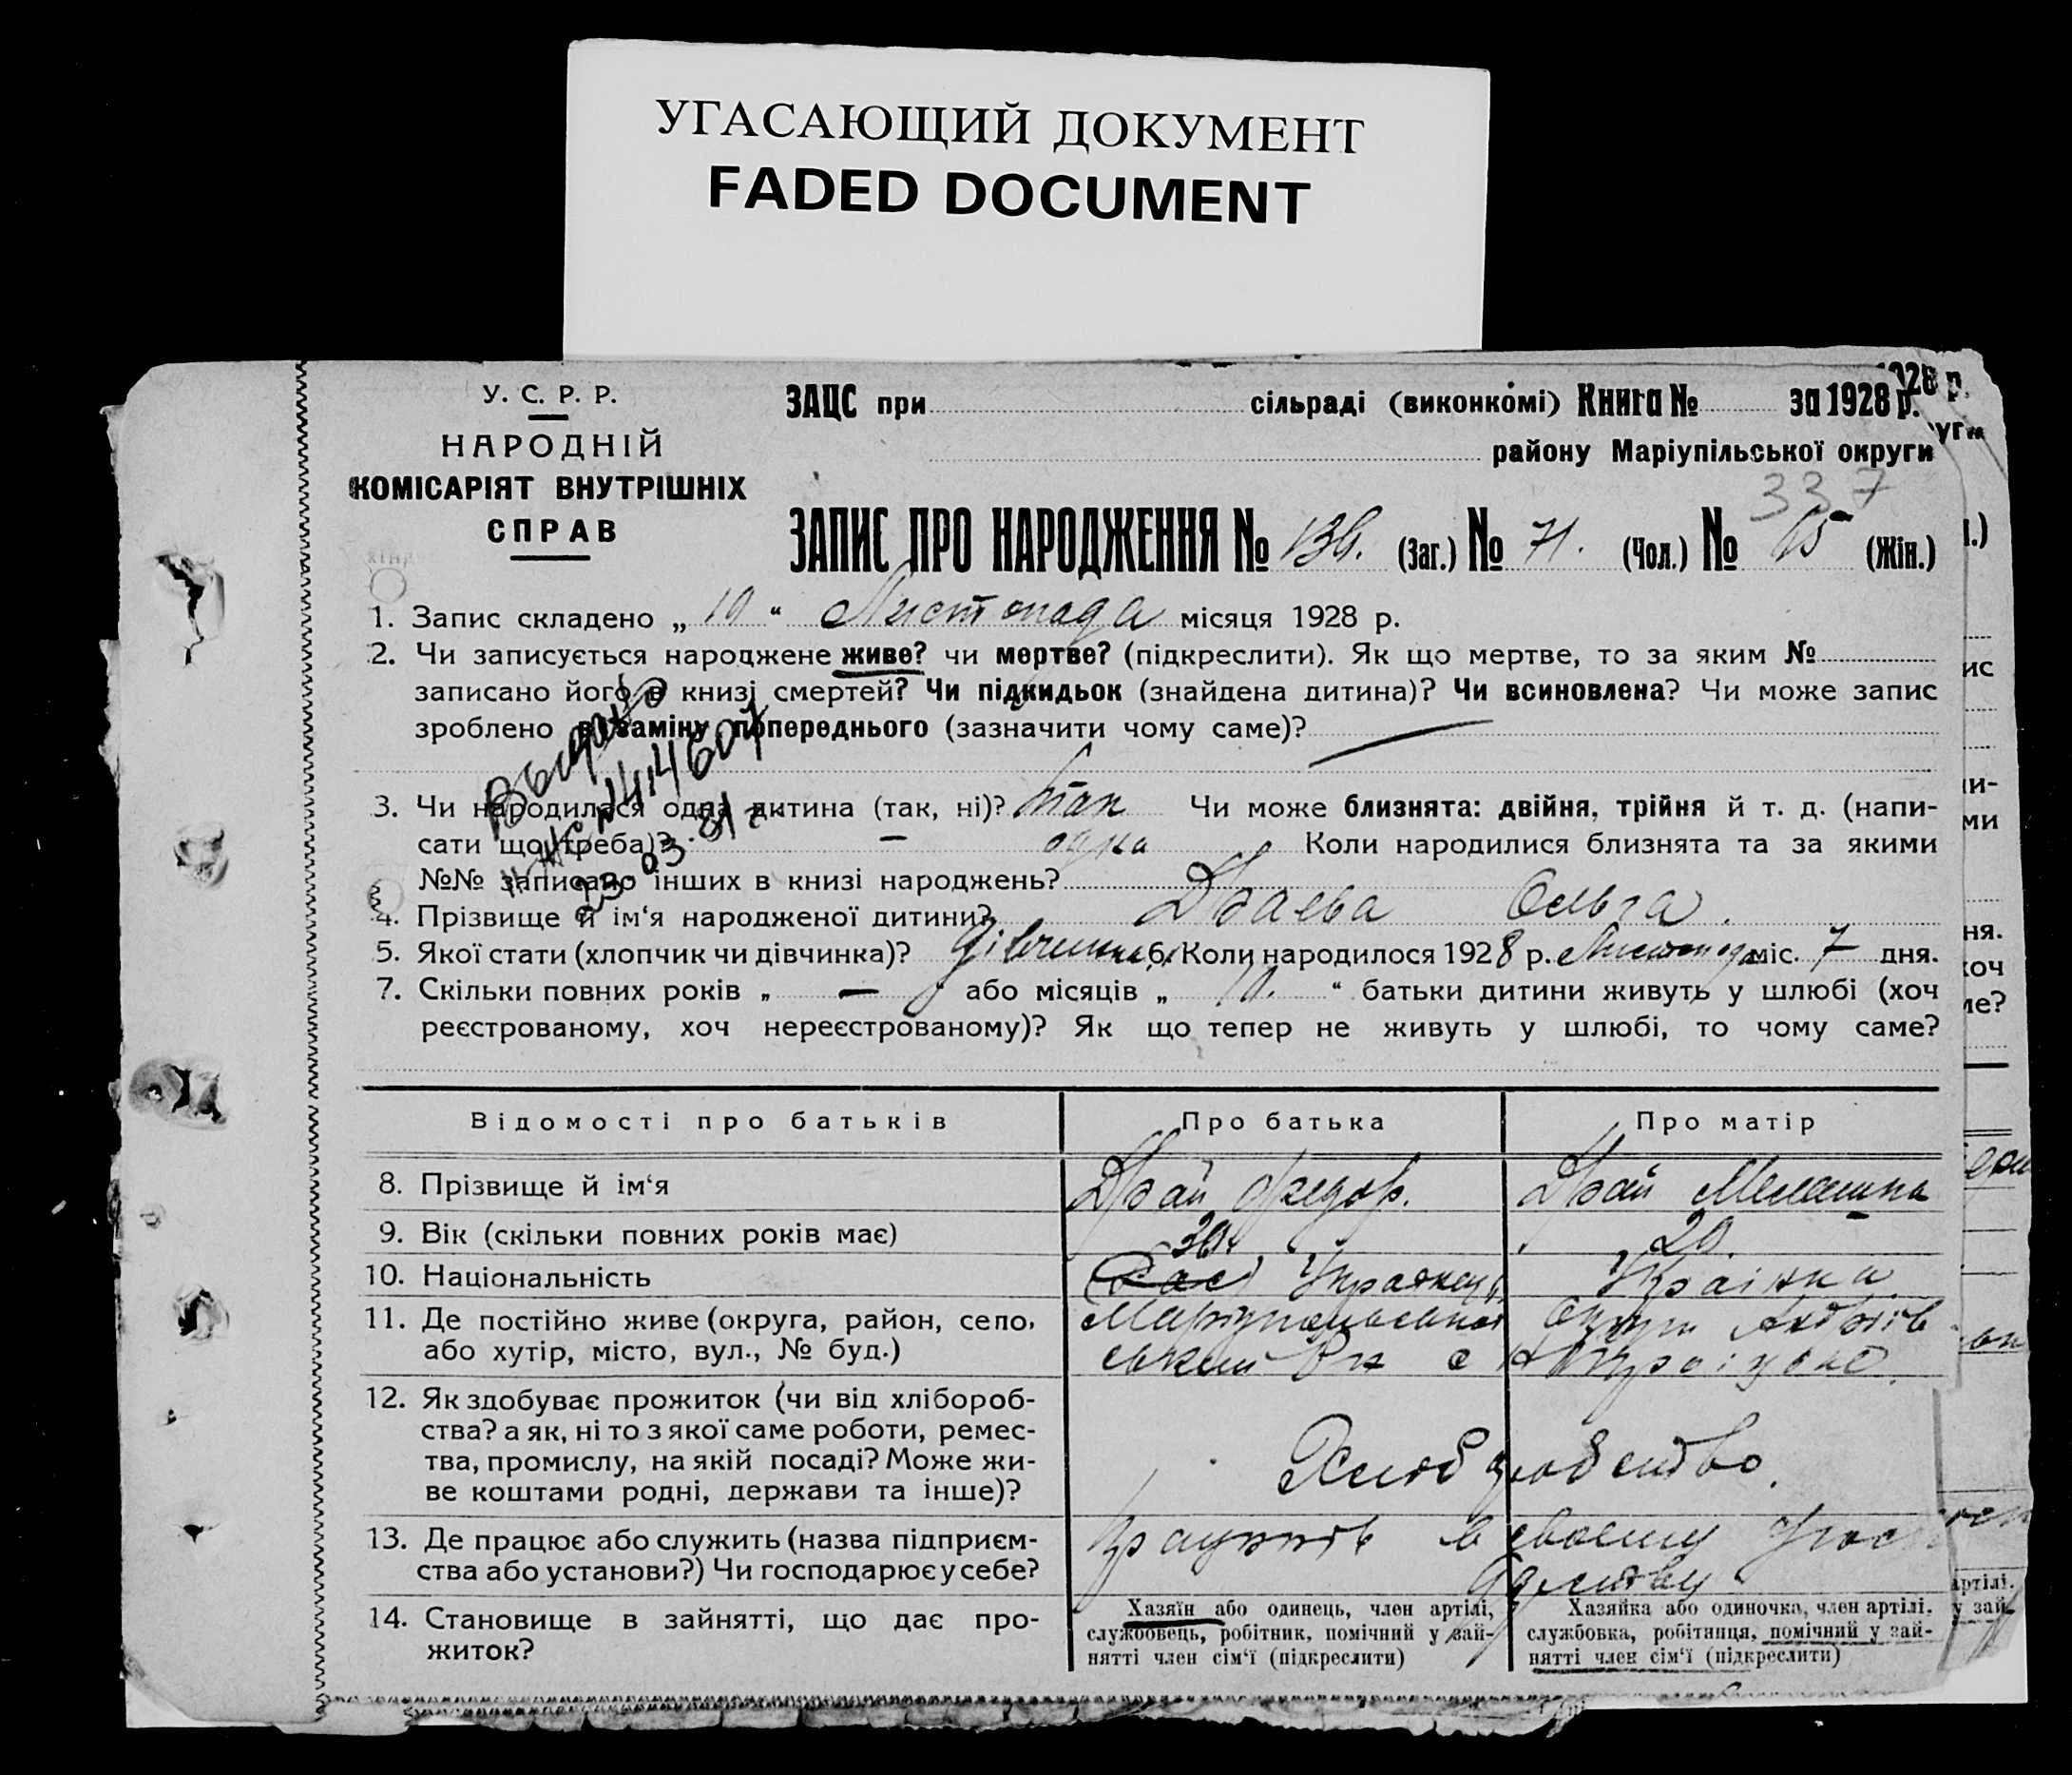 УГАСАЮЩИЙ ДОКУМЕНТ
FADED DOCUMENT
У. С. Р. Р.
НАРОДНІЙ
КОМІСАРІЯТ ВНУТРІШНІХ
СПРАВ
ЗАЦС при сільраді (виконкомі) Книга № за 1928 р.
району Маріупільської округи
337
ЗАПИС ПРО НАРОДЖЕННЯ № 136. (Заг.) № 71. (Чол.) № 65 (Жін.)
1. Запис складено „ 10 “ Листопада місяця 1928 р.
2. Чи записується народжене живе? чи мертве? (підкреслити). Як що мертве, то за яким №
записано його в книзі смертей? Чи підкидьок (знайдена дитина)? Чи всиновлена? Чи може запис
зроблено в заміну попереднього (зазначити чому саме)? —
Выдано
№ 414607
23.03.81 г.
3. Чи народилася одна дитина (так, ні)? так Чи може близнята: двійня, трійня й т. д. (напи-
сати що треба)? — одна Коли народилися близнята та за якими
№№ записано інших в книзі народжень?
4. Прізвище й ім‘я народженої дитини? Драева Ольга.
5. Якої стати (хлопчик чи дівчинка)? Дівчинка 6. Коли народилося 1928 р. Листопада міс. 7 дня.
7. Скільки повних років „ — “ або місяців „ 10. “ батьки дитини живуть у шлюбі (хоч
реєстрованому, хоч нереєстрованому)? Як що тепер не живуть у шлюбі, то чому саме?
Відомості про батьків Про батька Про матір
8. Прізвище й ім‘я Драй Федор. Драй Мелашка
9. Вік (скільки повних років має) 30. 20.
10. Національність Українец Українка
11. Де постійно живе (округа, район, село, Маріупольської округи Андріїв
або хутір, місто, вул., № буд.) ський Рн с
12. Як здобуває прожиток (чи від хлібороб-
ства? а як, ні то з якої саме роботи, ремес-
тва, промислу, на якій посаді? Може жи-
ве коштами родні, держави та інше)?
13. Де працює або служить (назва підприєм- в своєму
ства або установи?) Чи господарює у себе?
14. Становище в зайнятті, що дає про-
житок?
Хазяїн або одинець, член артілі,
службовець, робітник, помічний у зай-
нятті член сім‘ї (підкреслити)
Хазяйка або одиночка, член артілі,
службовка, робітниця, помічний у зай-
нятті член сім‘ї (підкреслити)